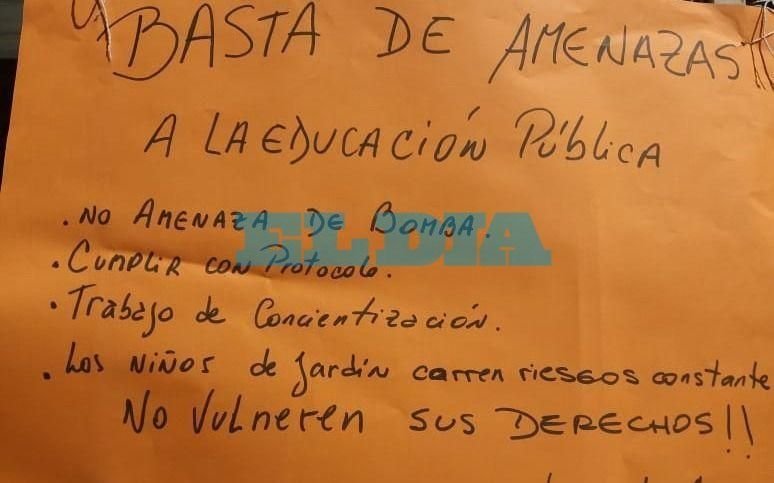 BASTA DE AMENAZAS
A LA EDUCACIÓN PÚBLICA
. NO AMENAZA DE BOMBA.
. CUMPLIR CON Protocolo.
. Trabajo de Concientización.
. Los NIÑOS de Jardín corren riesgos constante
No Vulneren SUS DERECHOS!!
EL DIA